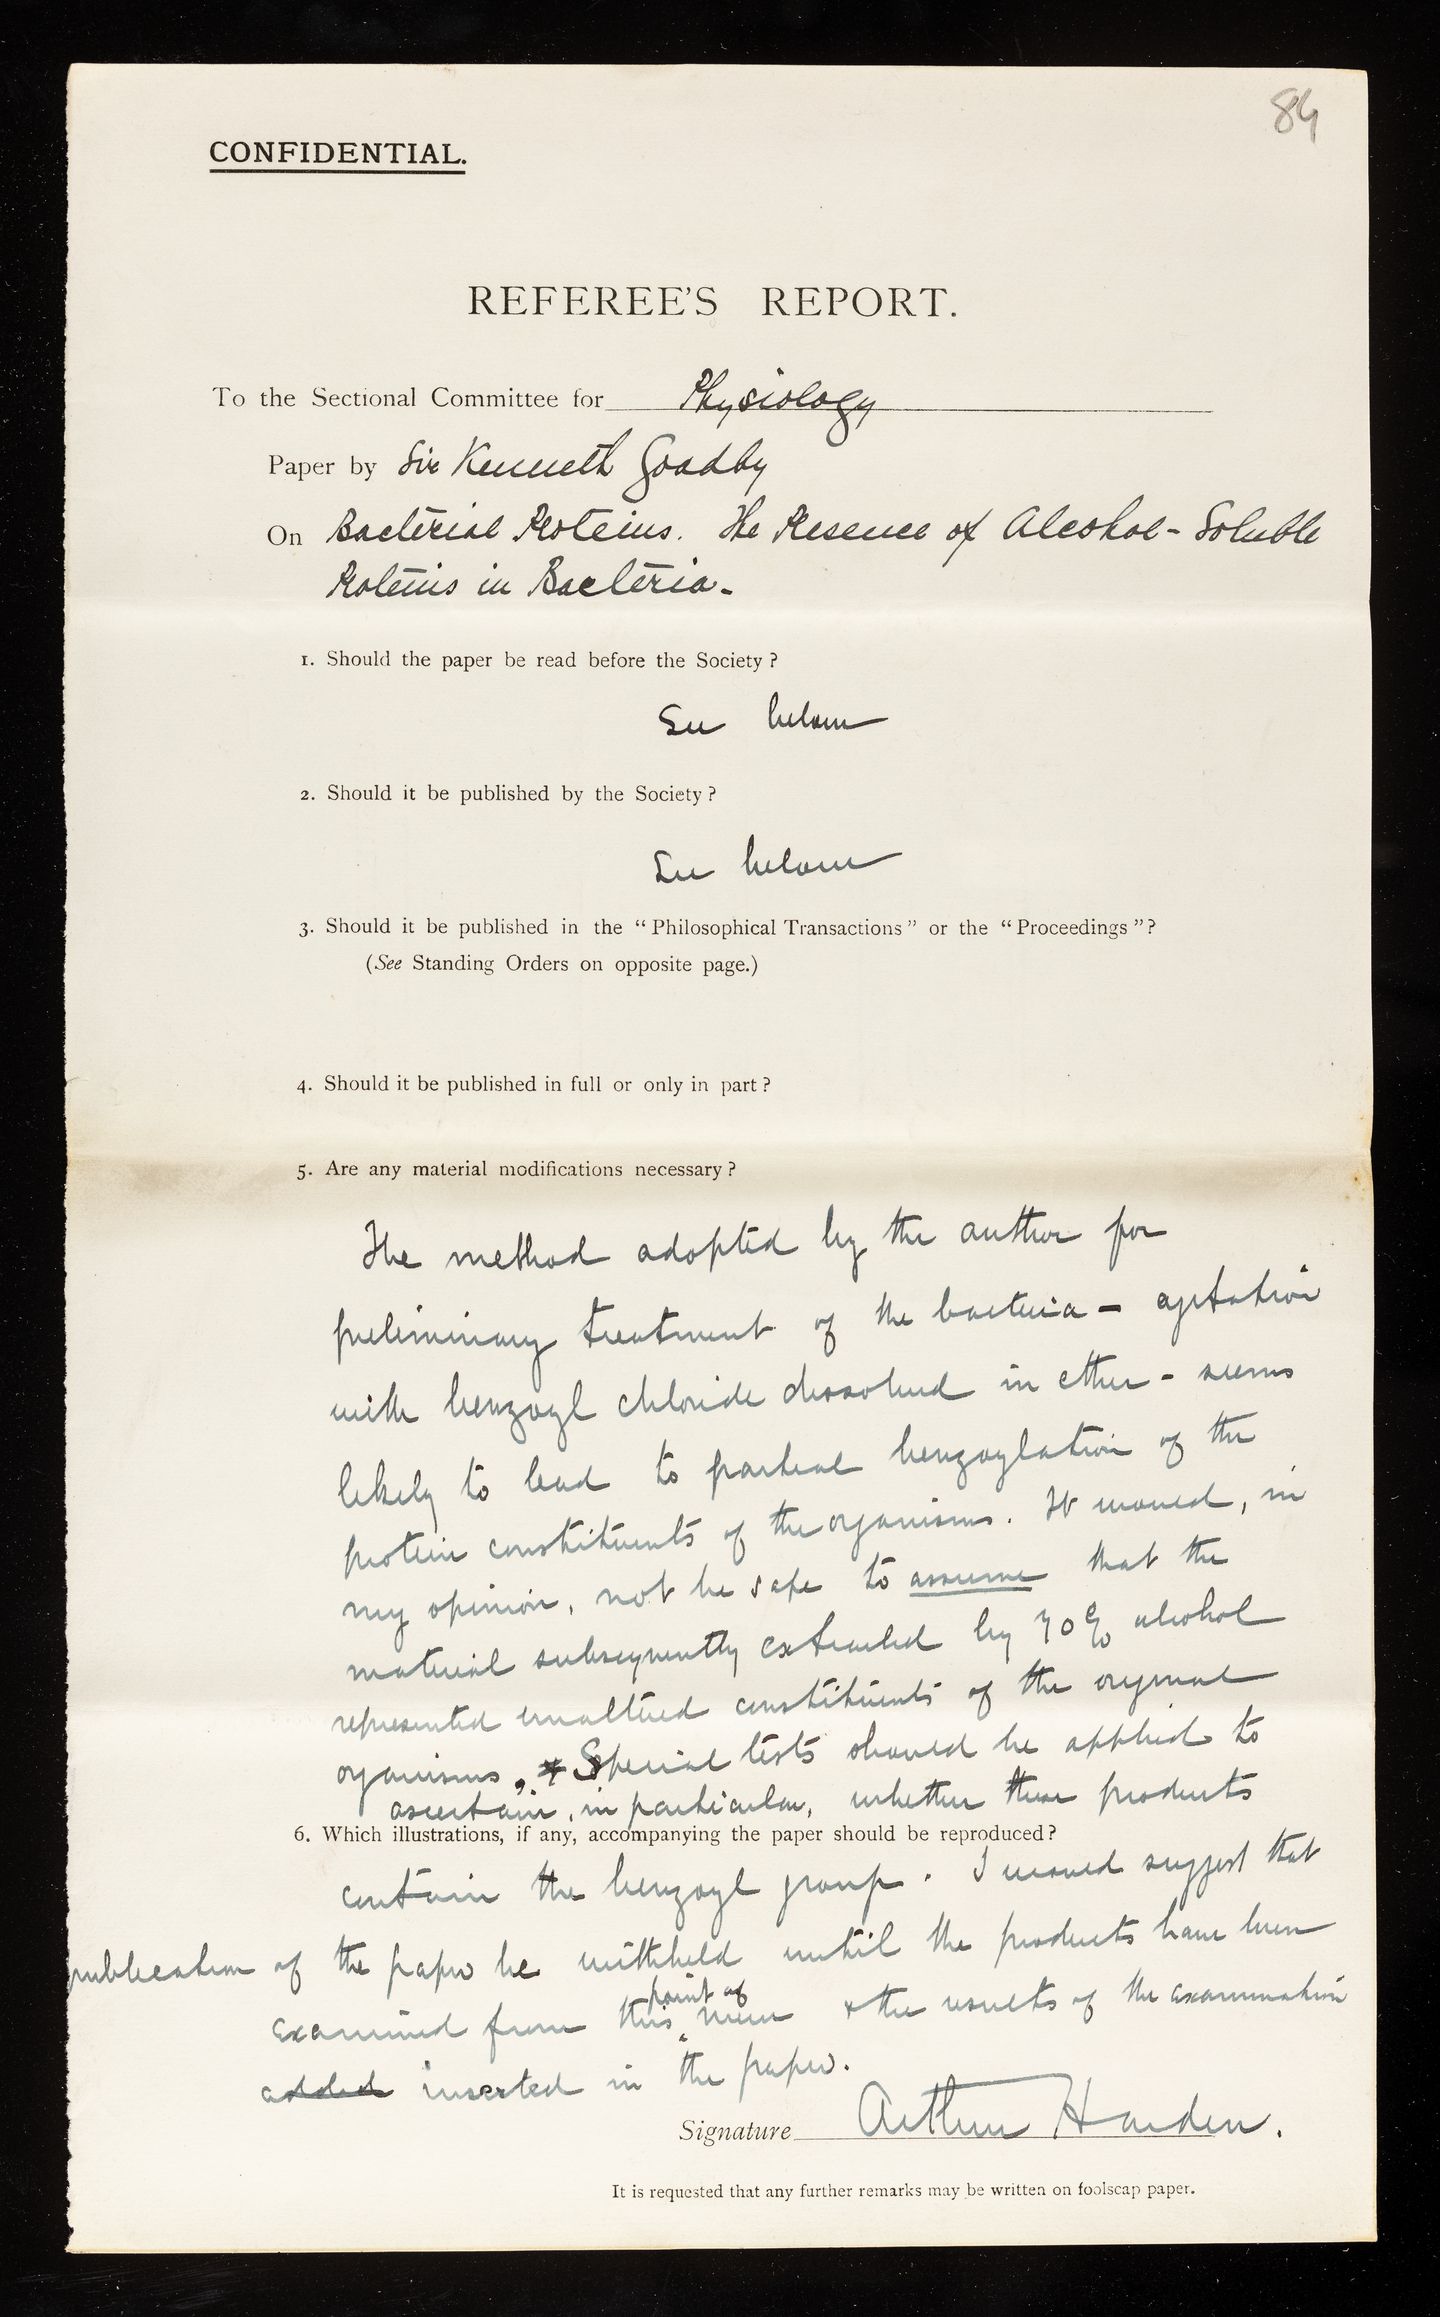 84
CONFIDENTIAL.
REFEREE'S REPORT.
To the Sectional Committee for Physiology
Paper by Sir Kenneth Goadby
On Bacterial Proteins. The Presence of Alcohol-Soluble
Proteins in Bacteria.
1. Should the paper be read before the Society?
See below
2. Should it be published by the Society?
See below
3. Should it be published in the "Philosophical Transactions" or the "Proceedings"?
(See Standing Orders on opposite page.)
4. Should it be published in full or only in part?
5. Are any material modifications necessary?
The method adopted by the author for
preliminary treatment of the bacteria - agitation
with benzoyl chloride dissolved in ether - seems
likely to lead to partial benzoylation of the
protein constituents of the organisms. It would, in
my opinion, not be safe to assume that the
material subsequently extracted by 70% alcohol
represented unaltered constituents of the original
organisms. Special tests should be applied to
ascertain, in particular, whether these products
6. Which illustrations, if any, accompanying the paper should be reproduced?
contain the benzoyl group. I would suggest that
publication of the paper be withheld until the products have been
examined from this point of view & the results of the examination
added inserted in the paper.
Signature Arthur Harden.
It is requested that any further remarks may be written on foolscap paper.